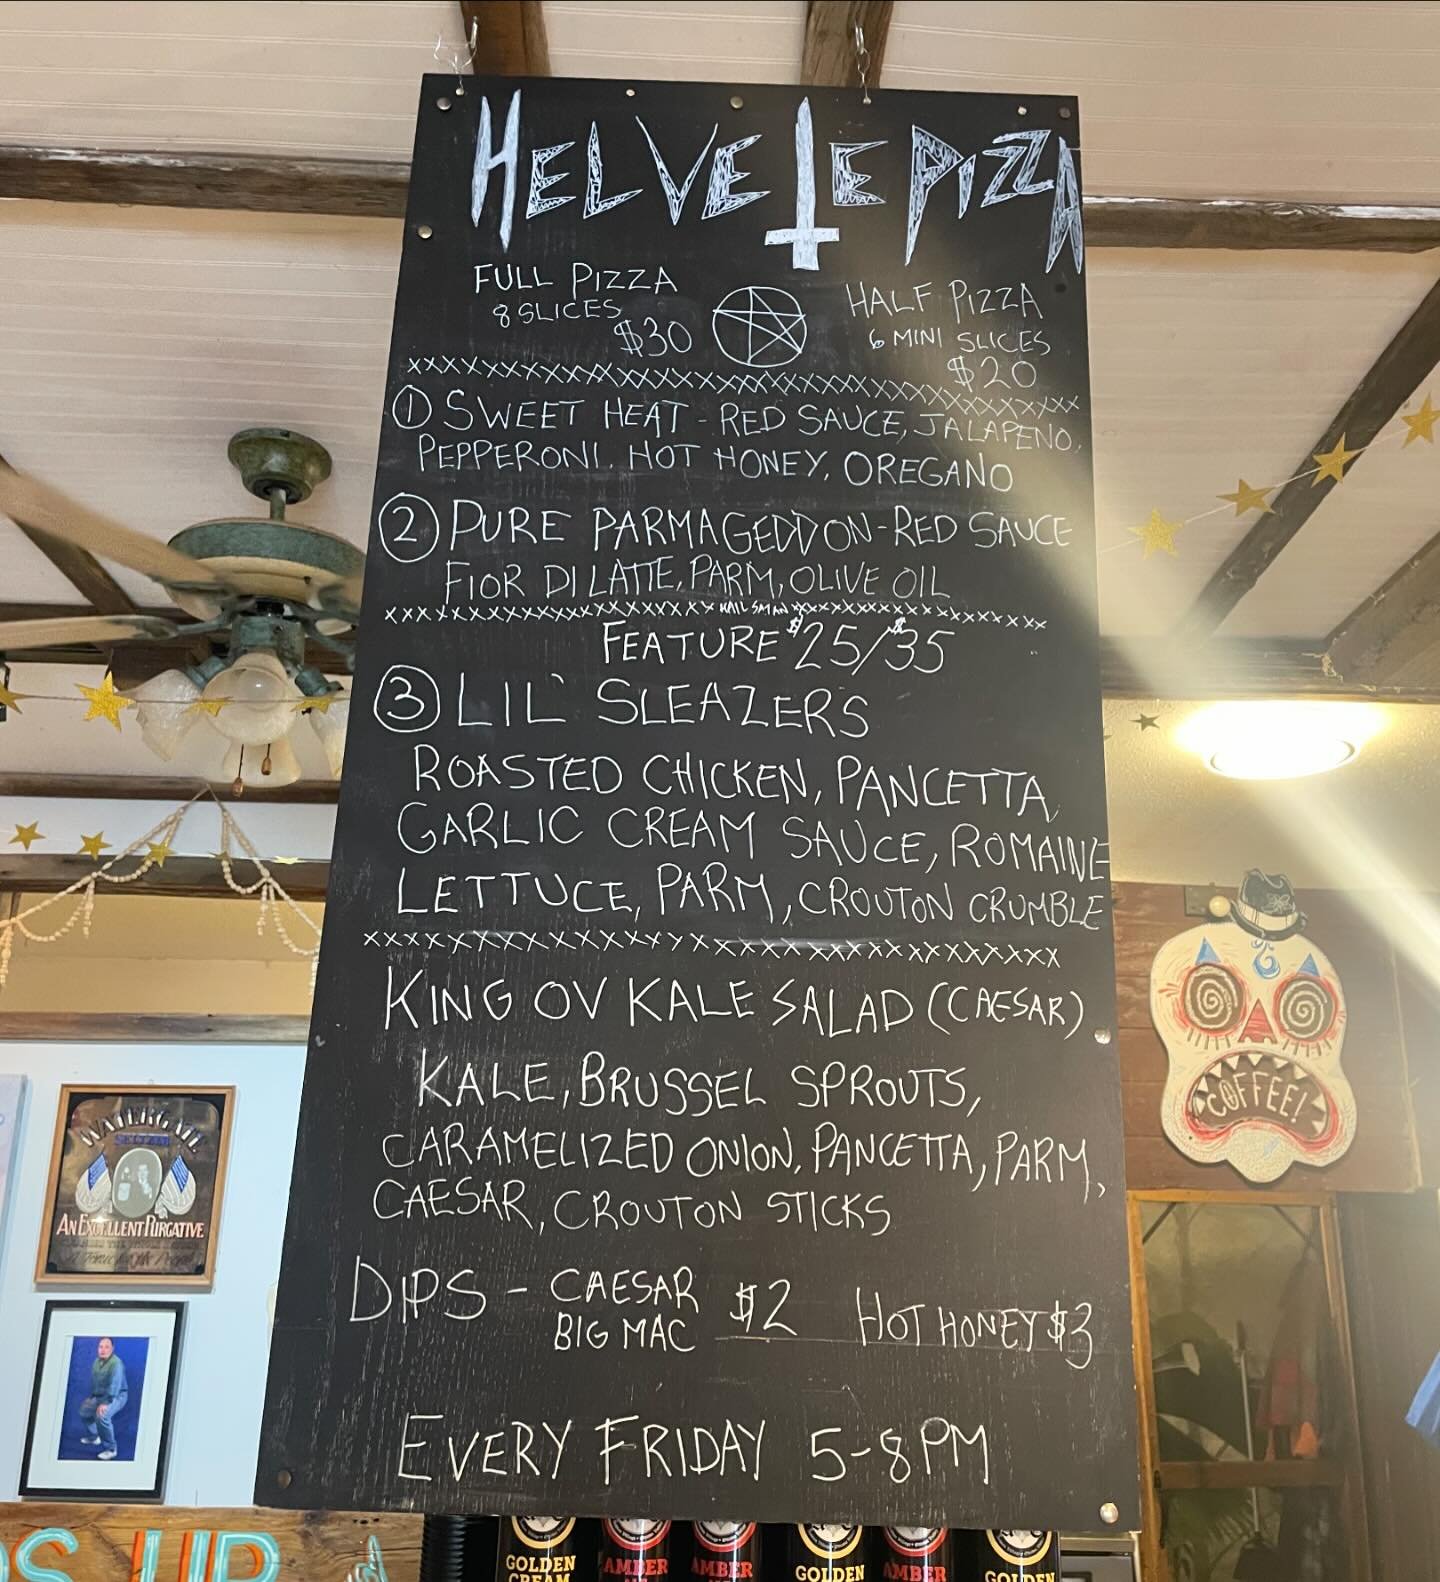 HELVETE PIZZA
FULL PIZZA
8 SLICES
$30
HALF PIZZA
6 MINI SLICES
$20
① SWEET HEAT - RED SAUCE, JALAPENO,
PEPPERONI, HOT HONEY, OREGANO
② PURE PARMAGEDDON - RED SAUCE
FIOR DI LATTE, PARM, OLIVE OIL
FEATURE $25/$35
③ LIL' SLEAZERS
ROASTED CHICKEN, PANCETTA,
GARLIC CREAM SAUCE, ROMAINE
LETTUCE, PARM, CROUTON CRUMBLE
KING OV KALE SALAD (CAESAR)
KALE, BRUSSEL SPROUTS,
CARAMELIZED ONION, PANCETTA, PARM,
CAESAR, CROUTON STICKS
DIPS - CAESAR $2 HOT HONEY $3
BIG MAC
EVERY FRIDAY 5-8PM
WATERGATE
AN EXCELLENT PURGATIVE
COFFEE!
S UP
GOLDEN
CREAM
AMBER
AMBER
GOLDEN
AMBER
GOLDEN